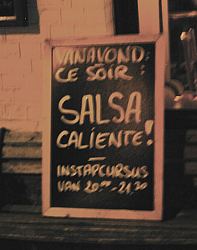 VANAVOND:
CE SOIR:
SALSA
CALIENTE!
—
INSTAPCURSUS
VAN 20.00-21.30